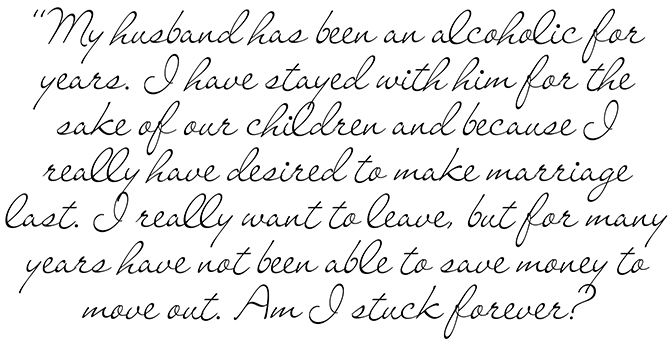 "My husband has been an alcoholic for
years. I have stayed with him for the
sake of our children and because I
really have desired to make marriage
last. I really want to leave, but for many
years have not been able to save money to
move out. Am I stuck forever?